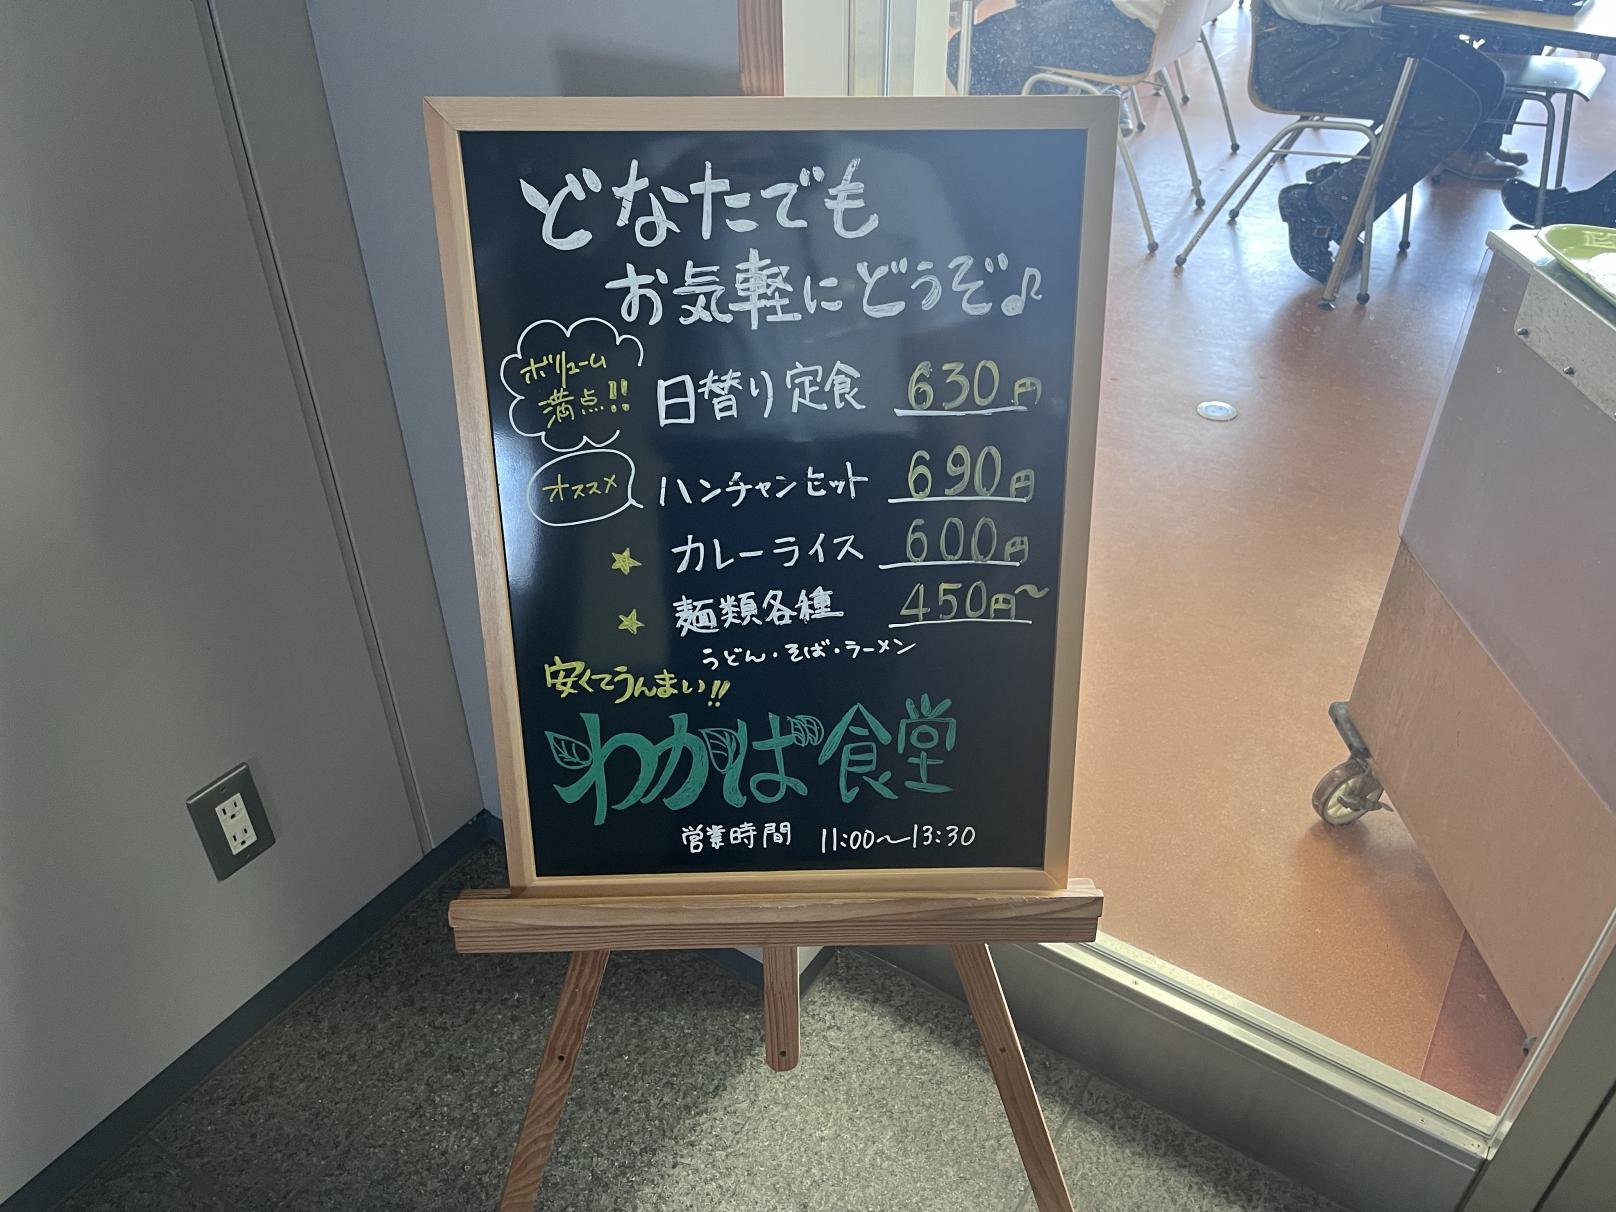 どなたでも
お気軽にどうぞ♪
ボリューム
満点!!
日替り定食 630円
オススメ
ハンチャンセット 690円
★ カレーライス 600円
★ 麺類各種 450円~
うどん・そば・ラーメン
安くてうんまい!!
わかば食堂
営業時間 11:00~13:30